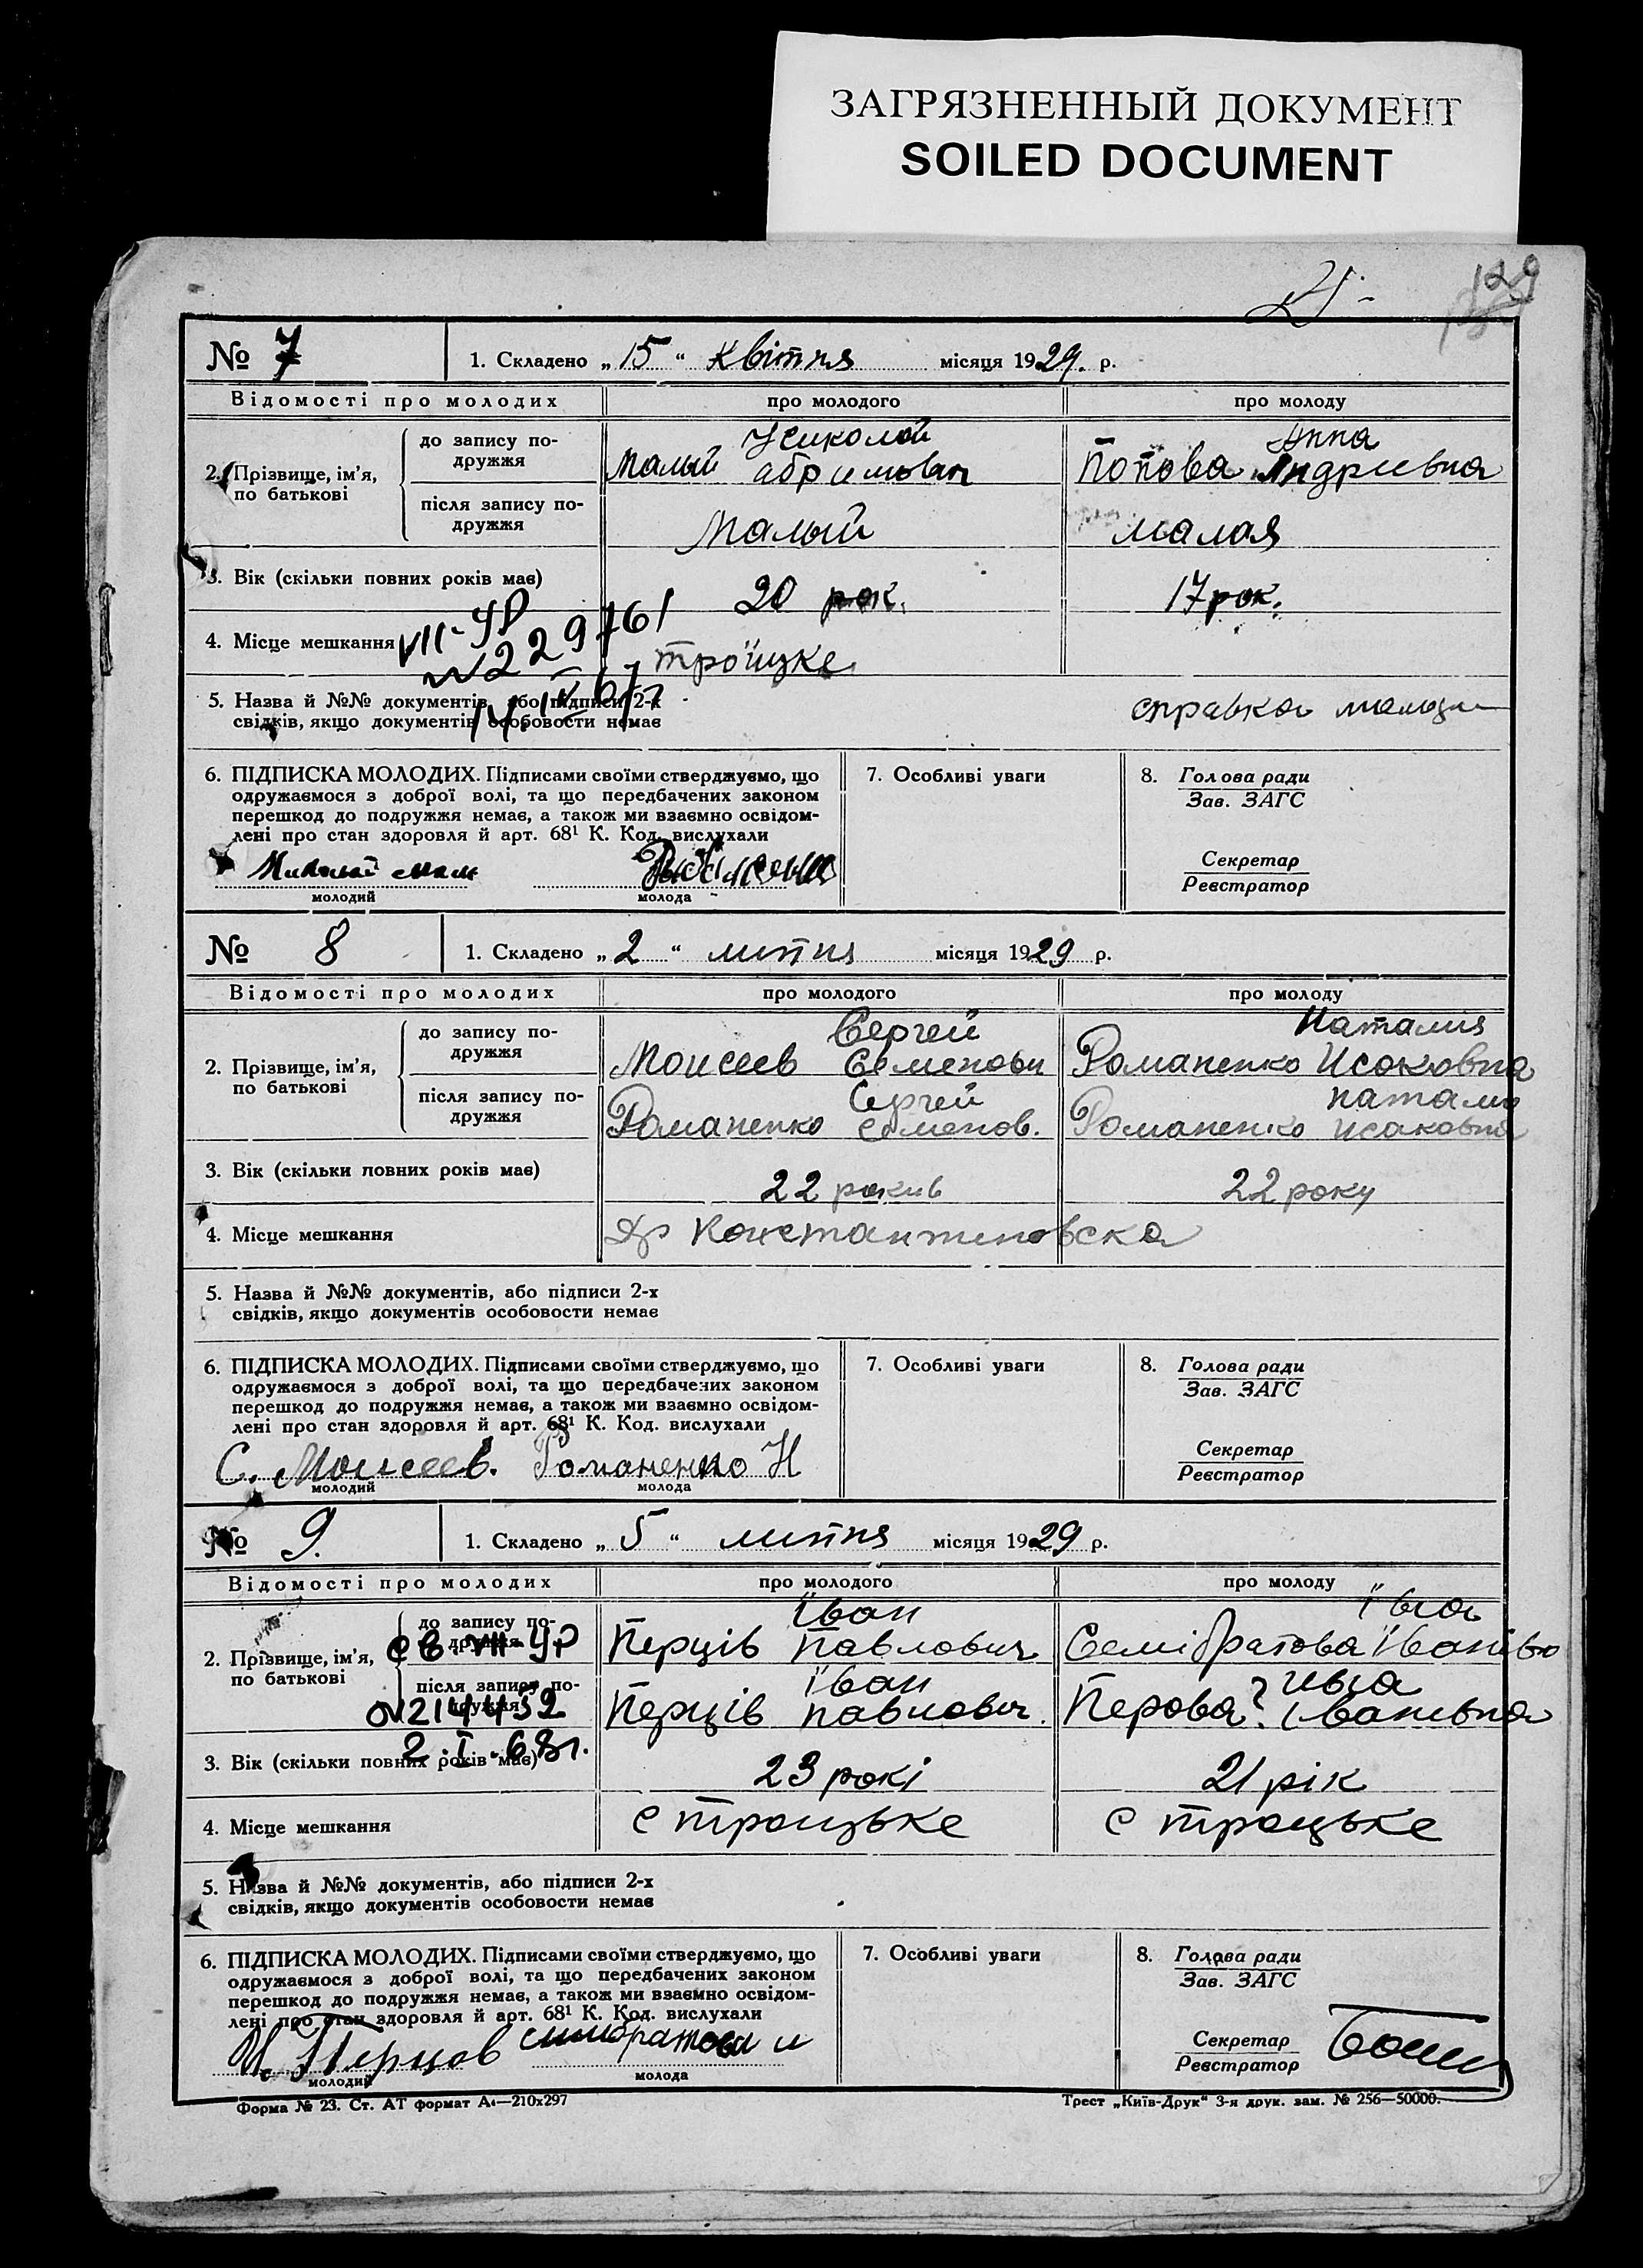 ЗАГРЯЗНЕННЫЙ ДОКУМЕНТ
SOILED DOCUMENT
129
№ 7
1. Складено „ 15 “ квітня місяця 1929. р.
Відомості про молодих
про молодого
про молоду
2. Прізвище, ім’я, по батькові
до запису подружжя
Николай
Малый
Анна
Попова Андриевна
після запису подружжя
Малый
малая
3. Вік (скільки повних років має)
20 рок.
17 рок.
4. Місце мешкання
VII-УР
№229761
Троіцке
5. Назва й №№ документів, або підписи 2-х
свідків, якщо документів особовости немає
справка
6. ПІДПИСКА МОЛОДИХ. Підписами своїми стверджуємо, що
одружаємося з доброї волі, та що передбачених законом
перешкод до подружжя немає, а також ми взаємно освідом-
лені про стан здоровля й арт. 68¹ К. Код. вислухали
молодий
молода
7. Особливі уваги
8. Голова ради
Зав. ЗАГС
Секретар
Реєстратор
№ 8
1. Складено „ 2 “ липня місяця 1929 р.
Відомості про молодих
про молодого
про молоду
2. Прізвище, ім’я, по батькові
до запису подружжя
Сергей
Моисеев Семенови
Наталия
Романенко Исаковна
після запису подружжя
Сергей
Романенко Семенов.
Романенко исаковна
3. Вік (скільки повних років має)
22 рокив
22 року
4. Місце мешкання
Константиновска
5. Назва й №№ документів, або підписи 2-х
свідків, якщо документів особовости немає
6. ПІДПИСКА МОЛОДИХ. Підписами своїми стверджуємо, що
одружаємося з доброї волі, та що передбачених законом
перешкод до подружжя немає, а також ми взаємно освідом-
лені про стан здоровля й арт. 68¹ К. Код. вислухали
С. Моисеев. Романенко Н
молодий
молода
7. Особливі уваги
8. Голова ради
Зав. ЗАГС
Секретар
Реєстратор
№ 9.
1. Складено „ 5 “ липня місяця 1929 р.
Відомості про молодих
про молодого
про молоду
2. Прізвище, ім’я, по батькові
до запису подружжя
св. VIII-УР
Іван
Перців Павлович
Семібратова
після запису подружжя
№214432
2.I.68г.
Іван
Перців Павлович.
Перова? Іванивна
3. Вік (скільки повних років має)
23 рокі
21 рік
4. Місце мешкання
с троицьке
с троцьке
5. Назва й №№ документів, або підписи 2-х
свідків, якщо документів особовости немає
6. ПІДПИСКА МОЛОДИХ. Підписами своїми стверджуємо, що
одружаємося з доброї волі, та що передбачених законом
перешкод до подружжя немає, а також ми взаємно освідом-
лені про стан здоровля й арт. 68¹ К. Код. вислухали
И. Перцов
молодий
молода
7. Особливі уваги
8. Голова ради
Зав. ЗАГС
Секретар
Реєстратор
Форма № 23. Ст. АТ формат А₄—210х297
Трест „Київ-Друк“ 3-я друк. зам. № 256—50000.